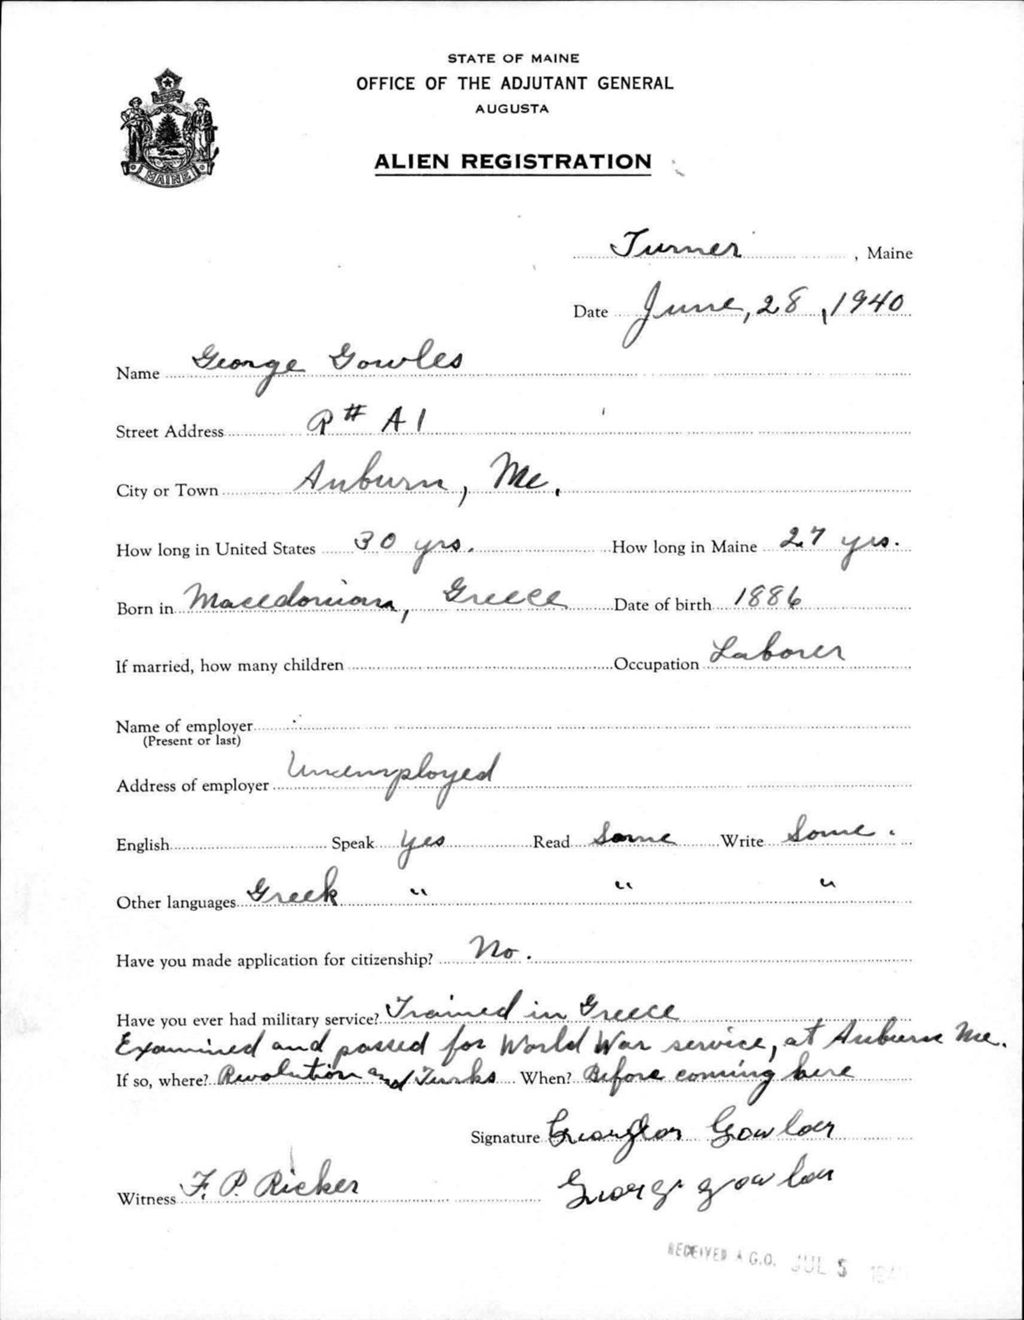 STATE OF MAINE
OFFICE OF THE ADJUTANT GENERAL
AUGUSTA
MAINE
ALIEN REGISTRATION
Turner, Maine
Date June, 28, 1940
Name George Gowles
Street Address R # A 1
City or Town Auburn, Me.
How long in United States 30 yrs. How long in Maine 27 yrs.
Born in Macedonian, Greece Date of birth 1886
If married, how many children Occupation Laborer
Name of employer
(Present or last)
Address of employer Unemployed
English Speak yes Read Some Write Some.
Other languages Greek " " "
Have you made application for citizenship? No.
Have you ever had military service? Trained in Greece
Examined and passed for World War service, at Auburn Me.
If so, where? Revolution and Turks When? Before coming here
Signature Gowlas
Witness F. P. Ricker George gowlas
RECEIVED A.G.O. JUL 5 1940